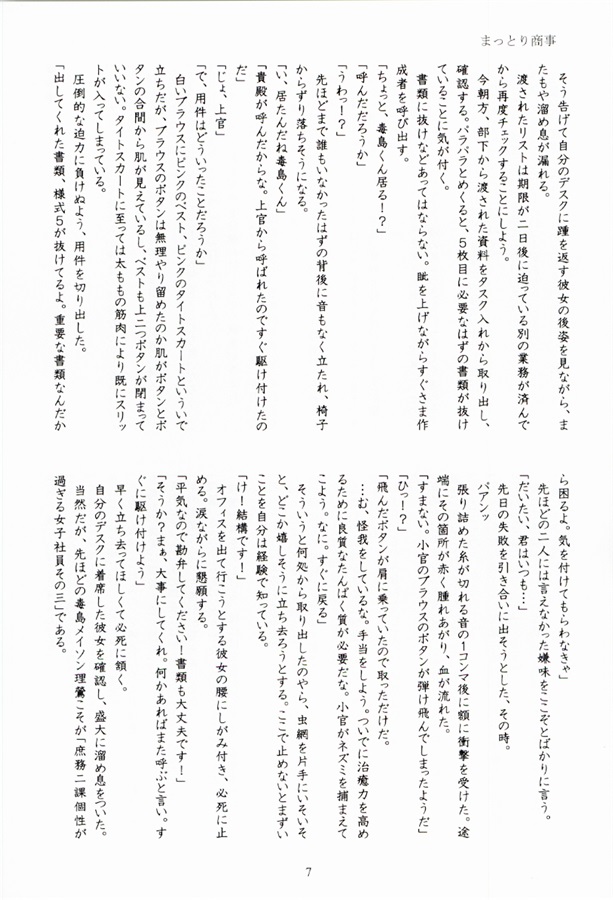 まっとり商事
そう告げて自分のデスクに踵を返す彼女の後姿を見ながら、ま
たもや溜め息が漏れる。
渡されたリストは期限が二日後に迫っている別の業務が済んで
から再度チェックすることにしよう。
今朝方、部下から渡された資料をタスク入れから取り出し、
確認する。パラパラとめくると、5枚目に必要なはずの書類が抜け
ていることに気が付く。
書類に抜けなどあってはならない。眦を上げながらすぐさま作
成者を呼び出す。
「ちょっと、毒島くん居る!?」
「呼んだだろうか」
「うわっ!?」
先ほどまで誰もいなかったはずの背後に音もなく立たれ、椅子
からずり落ちそうになる。
「い、居たんだね毒島くん」
「貴殿が呼んだからな。上官から呼ばれたのですぐ駆け付けたの
だ」
「じょ、上官」
「で、用件はどういったことだろうか」
白いブラウスにピンクのベスト、ピンクのタイトスカートといういで
立ちだが、ブラウスのボタンは無理やり留めたのか肌がボタンとボ
タンの合間から肌が見えているし、ベストも上二つボタンが閉まって
いない。タイトスカートに至っては太ももの筋肉により既にスリッ
トが入ってしまっている。
圧倒的な迫力に負けぬよう、用件を切り出した。
「出してくれた書類、様式5が抜けてるよ。重要な書類なんだか
ら困るよ。気を付けてもらわなきゃ」
先ほどの二人には言えなかった嫌味をここぞとばかりに言う。
「だいたい、君はいつも…」
先日の失敗を引き合いに出そうとした、その時。
パアンッ
張り詰めた糸が切れる音の1コンマ後に額に衝撃を受けた。途
端にその箇所が赤く腫れあがり、血が流れた。
「すまない。小官のブラウスのボタンが弾け飛んでしまったようだ」
「ひっ!?」
「飛んだボタンが肩に乗っていたので取っただけだ。
…む、怪我をしているな。手当をしよう。ついでに治癒力を高め
るために良質なたんぱく質が必要だな。小官がネズミを捕まえて
こよう。なに。すぐに戻る」
そういうと何処から取り出したのやら、虫網を片手にいそいそ
と、どこか嬉しそうに立ち去ろうとする。ここで止めないとまずい
ことを自分は経験で知っている。
「け!結構です!」
オフィスを出て行こうとする彼女の腰にしがみ付き、必死に止
める。涙ながらに懇願する。
「平気なので勘弁してください!書類も大丈夫です!」
「そうか?まぁ、大事にしてくれ。何かあればまた呼ぶと言い。す
ぐに駆け付けよう」
早く立ち去ってほしくて必死に頷く。
自分のデスクに着席した彼女を確認し、盛大に溜め息をついた。
当然だが、先ほどの毒島メイソン理鶯こそが「庶務二課個性が
過ぎる女子社員その三」である。
7